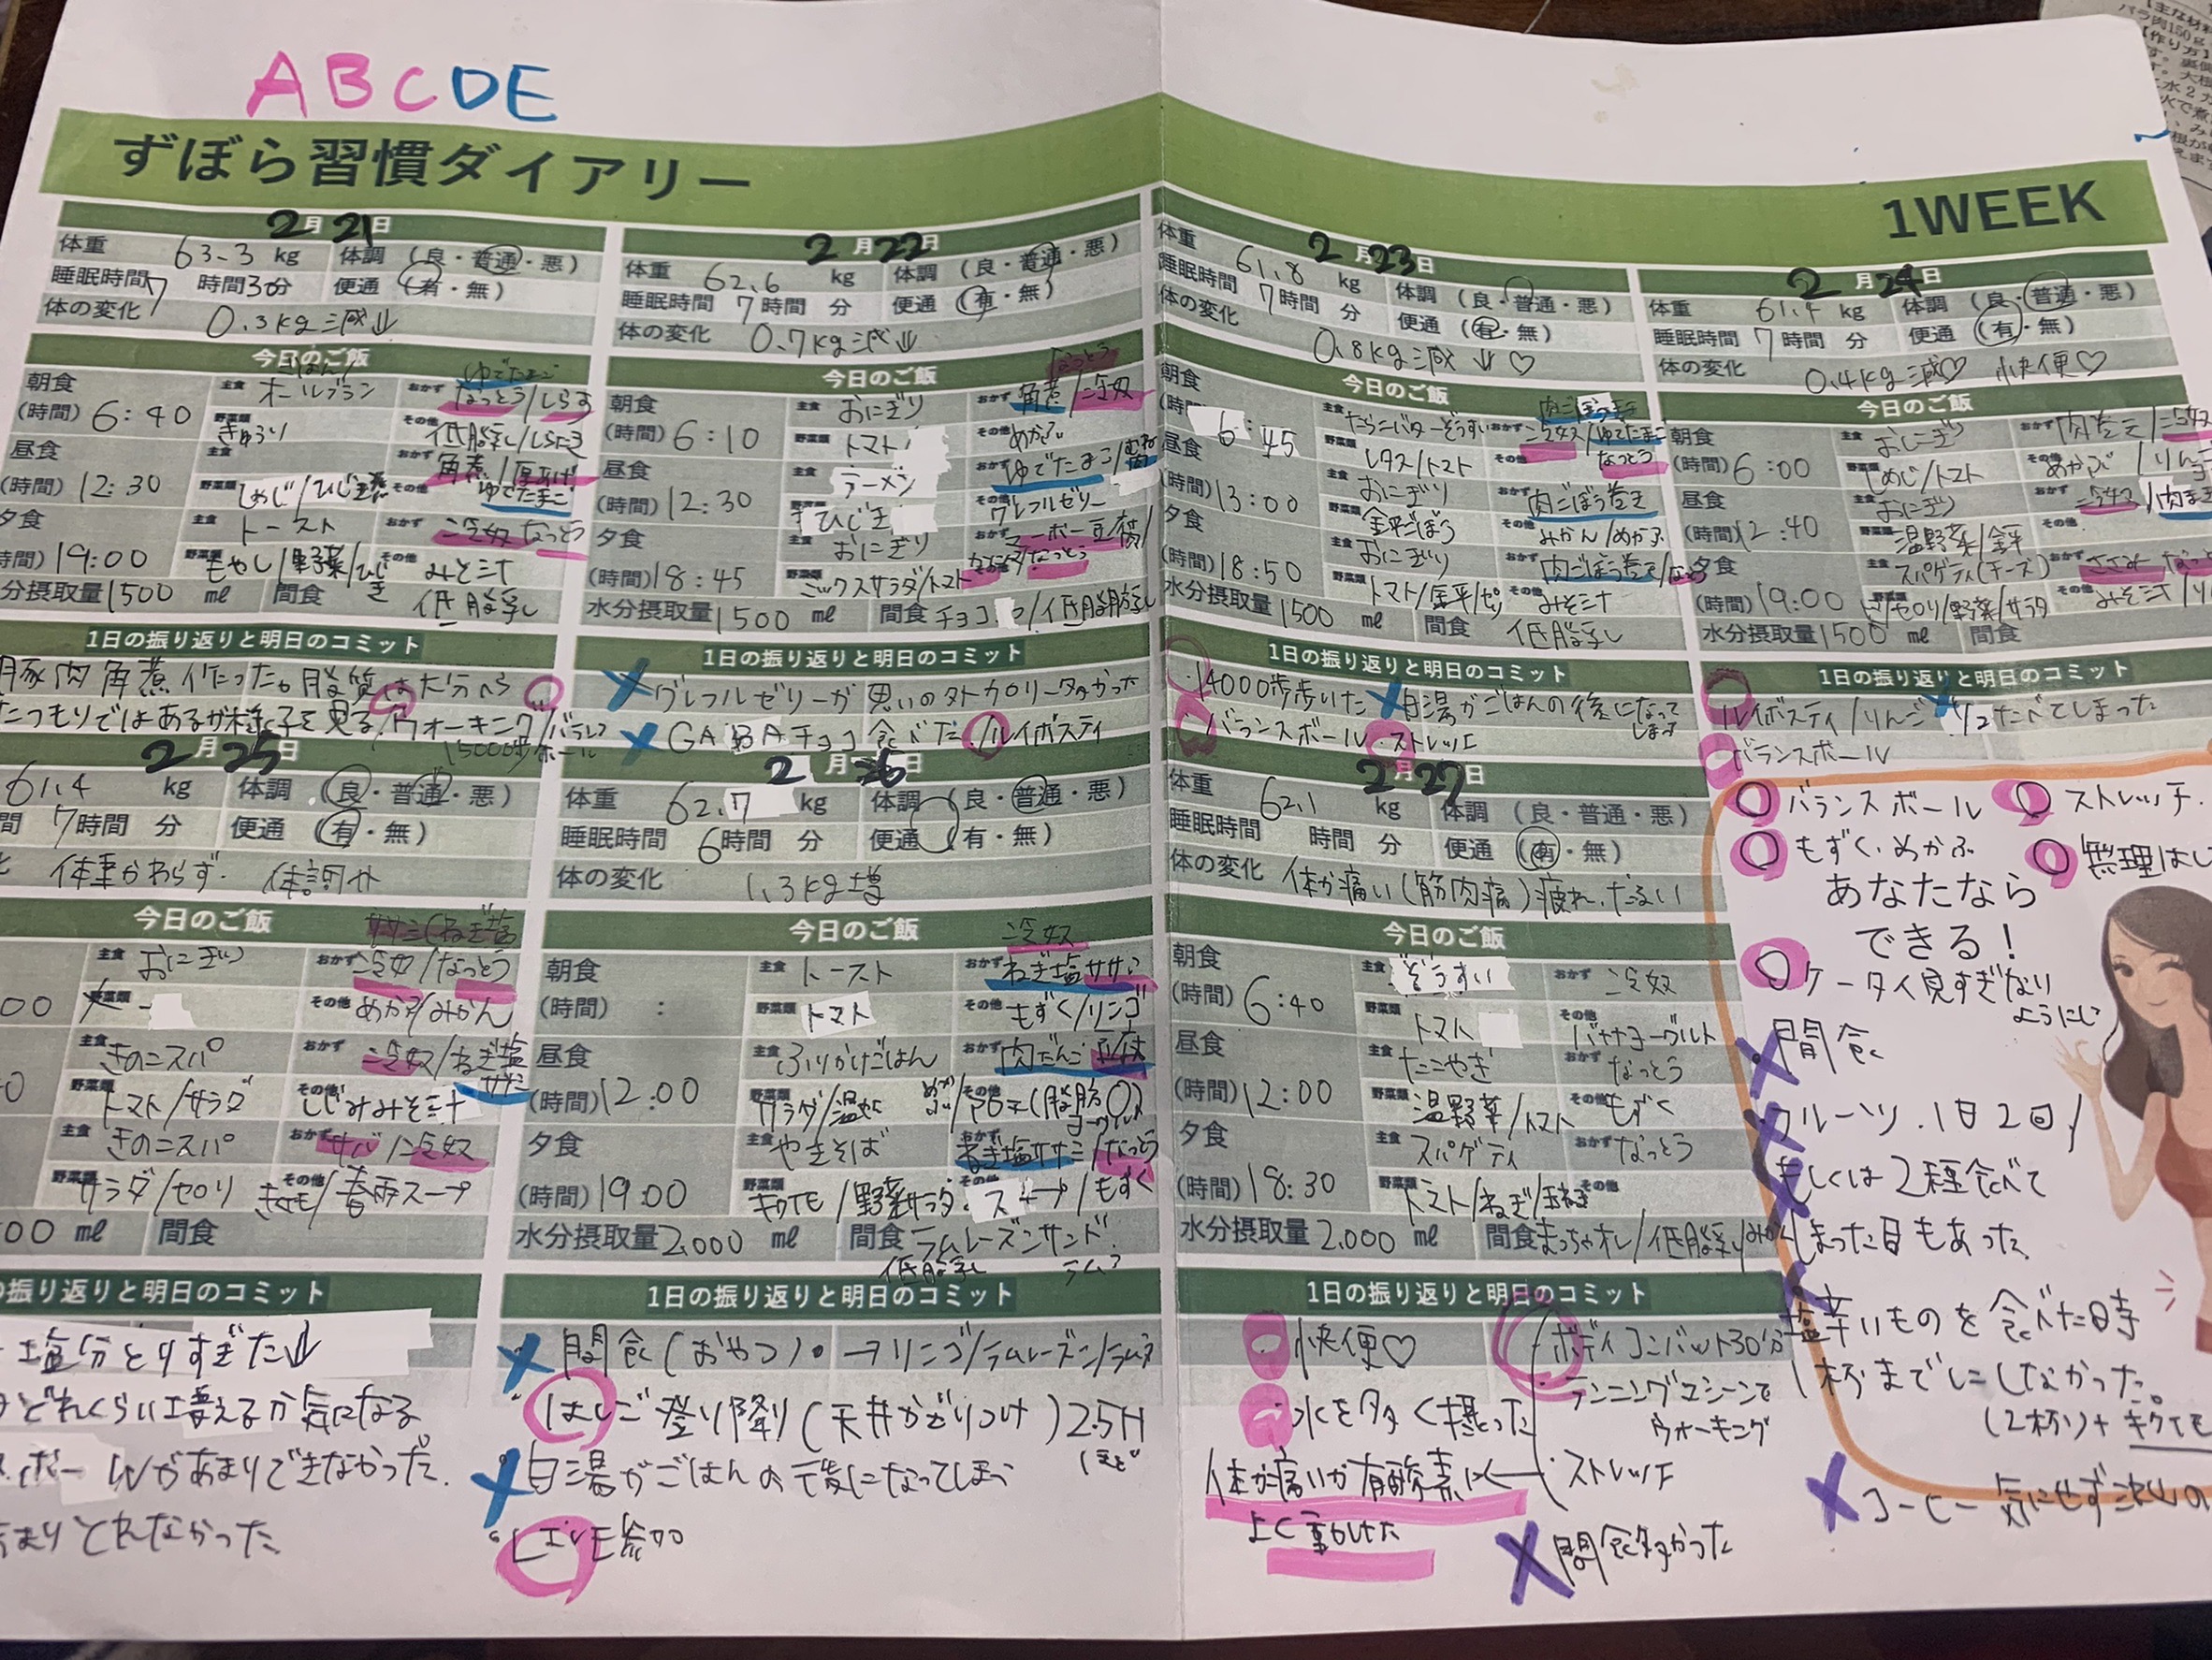 ABCDE
ずぼら習慣ダイアリー
1WEEK
2月21日
体重 63.3 kg 体調 (良・普通・悪)
睡眠時間 7 時間30分 便通 (有・無)
体の変化 0.3kg減↓
今日のご飯
朝食 主食 ごはん/オールブラン おかず ゆでたまご なっとう/しらす
(時間) 6:40 野菜類 きゅうり その他 低脂乳/しらたき
昼食 主食 おかず 角煮/厚あげ ゆでたまご
(時間) 12:30 野菜類 しめじ/ひじき その他
夕食 主食 トースト おかず 冷奴 なっとう
時間) 19:00 野菜類 もやし/野菜/ひじき その他 みそ汁
分摂取量 1500 ml 間食 低脂乳
1日の振り返りと明日のコミット
豚肉角煮作ったので脂質は大分へら
たつもりではあるが様子を見る/ウォーキング/バランス
15000歩 ボール
2月22日
体重 62.6 kg 体調 (良・普通・悪)
睡眠時間 7時間 分 便通 (有・無)
体の変化 0.7kg減↓
今日のご飯
朝食 主食 おにぎり おかず なっとう 角煮/冷奴
(時間) 6:10 野菜類 トマト その他 めかぶ
昼食 主食 ラーメン おかず ゆでたまご/
(時間) 12:30 ひじき その他 グレフルゼリー
夕食 主食 おにぎり おかず マーボー豆腐/
(時間) 18:45 野菜類 ミックスサラダ/トマト なっとう
水分摂取量 1500 ml 間食 チョコ /低脂肪乳
1日の振り返りと明日のコミット
× グレフルゼリーが思いのタトカロリー多かった
× GABAチョコ食べた/ルイボスティ
2月23日
体重 61.8 kg 体調 (良・普通・悪)
睡眠時間 7時間 分 便通 (有・無)
体の変化 0.8kg減↓♡
今日のご飯
朝食 主食 たらこバターぞうすい おかず 肉ごぼうまき 冷奴/ゆでたまご
(時 6:45 野菜類 レタス/トマト その他 なっとう
昼食 主食 おにぎり おかず 肉ごぼう巻き
(時間) 13:00 野菜類 金平ごぼう その他 みかん/めかぶ
夕食 主食 おにぎり おかず 肉ごぼう巻き/なっとう
(時間) 18:50 野菜類 トマト/金平/ その他 みそ汁
水分摂取量 1500 ml 間食 低脂乳
1日の振り返りと明日のコミット
・14000歩歩いた × 白湯がごはんの後になって
しまう
・バランスボール・ストレッチ
2月24日
体重 61.4 kg 体調 (良・普通・悪)
睡眠時間 7時間 分 便通 (有・無)
体の変化 0.4kg減♡ 快便♡
今日のご飯
朝食 主食 おにぎり おかず 肉巻き/冷奴
(時間) 6:00 野菜類 しめじ/トマト その他 めかぶ/りんご
昼食 主食 おにぎり おかず 冷奴/肉まき
(時間) 12:40 野菜類 温野菜/金平 その他
夕食 主食 スパゲティ(チーズ) おかず ささみ なっ
(時間) 19:00 セロリ/野菜/サラダ その他 みそ汁/
水分摂取量 1500 ml 間食
1日の振り返りと明日のコミット
ルイボスティ/りんご × たべてしまった
バランスボール
2月25日
61.4 kg 体調 (良・普通・悪)
間 7時間 分 便通 (有・無)
体重かわらず. 体調
今日のご飯
主食 おにぎり おかず ササミ(ねぎ塩 冷奴/なっとう
00 その他 めかぶ/みかん
主食 きのこスパ おかず 冷奴/ねぎ塩ササミ
野菜類 トマト/サラダ その他 しじみみそ汁
主食 きのこスパ おかず サバ/冷奴
野菜類 サラダ/セロリ その他 /春雨スープ
00 ml 間食
の振り返りと明日のコミット
塩分とりすぎた↓
どれくらい増えるか気になる
があまりできなかった.
まりとれなかった.
2月26日
体重 62.7 kg 体調 (良・普通・悪)
睡眠時間 6時間 分 便通 (有・無)
体の変化 1.3kg増
今日のご飯
朝食 主食 トースト おかず 冷奴 ねぎ塩ササミ
(時間) : 野菜類 トマト その他 もずく/リンゴ
昼食 主食 ふりかけごはん おかず 肉だんご
(時間) 12:00 野菜類 サラダ/温 その他 (脂肪0) ヨーグルト
夕食 主食 やきそば おかず ねぎ塩ササミ/なっとう
(時間) 19:00 野菜類 /野菜サラダ その他 スープ/もずく
水分摂取量 2,000 ml 間食 ラムレーズンサンド
低脂乳 ラムネ
1日の振り返りと明日のコミット
× 間食(おやつ)・→リンゴ/ラムレーズン/ラムネ
はしご登り降り(天井かざりつけ)2.5H
ほど
× 白湯がごはんの後になってしまう
・LIVE参加
2月27日
体重 62.1 kg 体調 (良・普通・悪)
睡眠時間 時間 分 便通 (有・無)
体の変化 体が痛い(筋肉痛)疲れ.だるい
今日のご飯
朝食 主食 ぞうすい おかず 冷奴
(時間) 6:40 トマト その他 バナナヨーグルト
昼食 主食 たこやき おかず なっとう
(時間) 12:00 野菜類 温野菜/トマト その他 もずく
夕食 主食 スパゲティ おかず なっとう
(時間) 18:30 野菜類 トマト/ねぎ/玉ねぎ その他
水分摂取量 2,000 ml 間食 まっちゃオレ/低脂乳/みかん
1日の振り返りと明日のコミット
快便♡ ・ボディコンバット30分
水を多く摂った ・ランニングマシーンで
ウォーキング
体が痛いが有酸素 ・ストレッチ
よく動かした
× 間食多かった
○バランスボール ○ストレッチ.
○もずく.めかぶ ○無理はし
あなたなら
できる!
○ケータイ見すぎない
ように
× 間食
× フルーツ.1日2回/
もしくは2種食べて
しまった日もあった.
× 塩辛いものを食べた時
1杯までにしなかった.
(2杯)+
× コーヒー気にせず
【主な材料
バラ肉150g
【作り方】